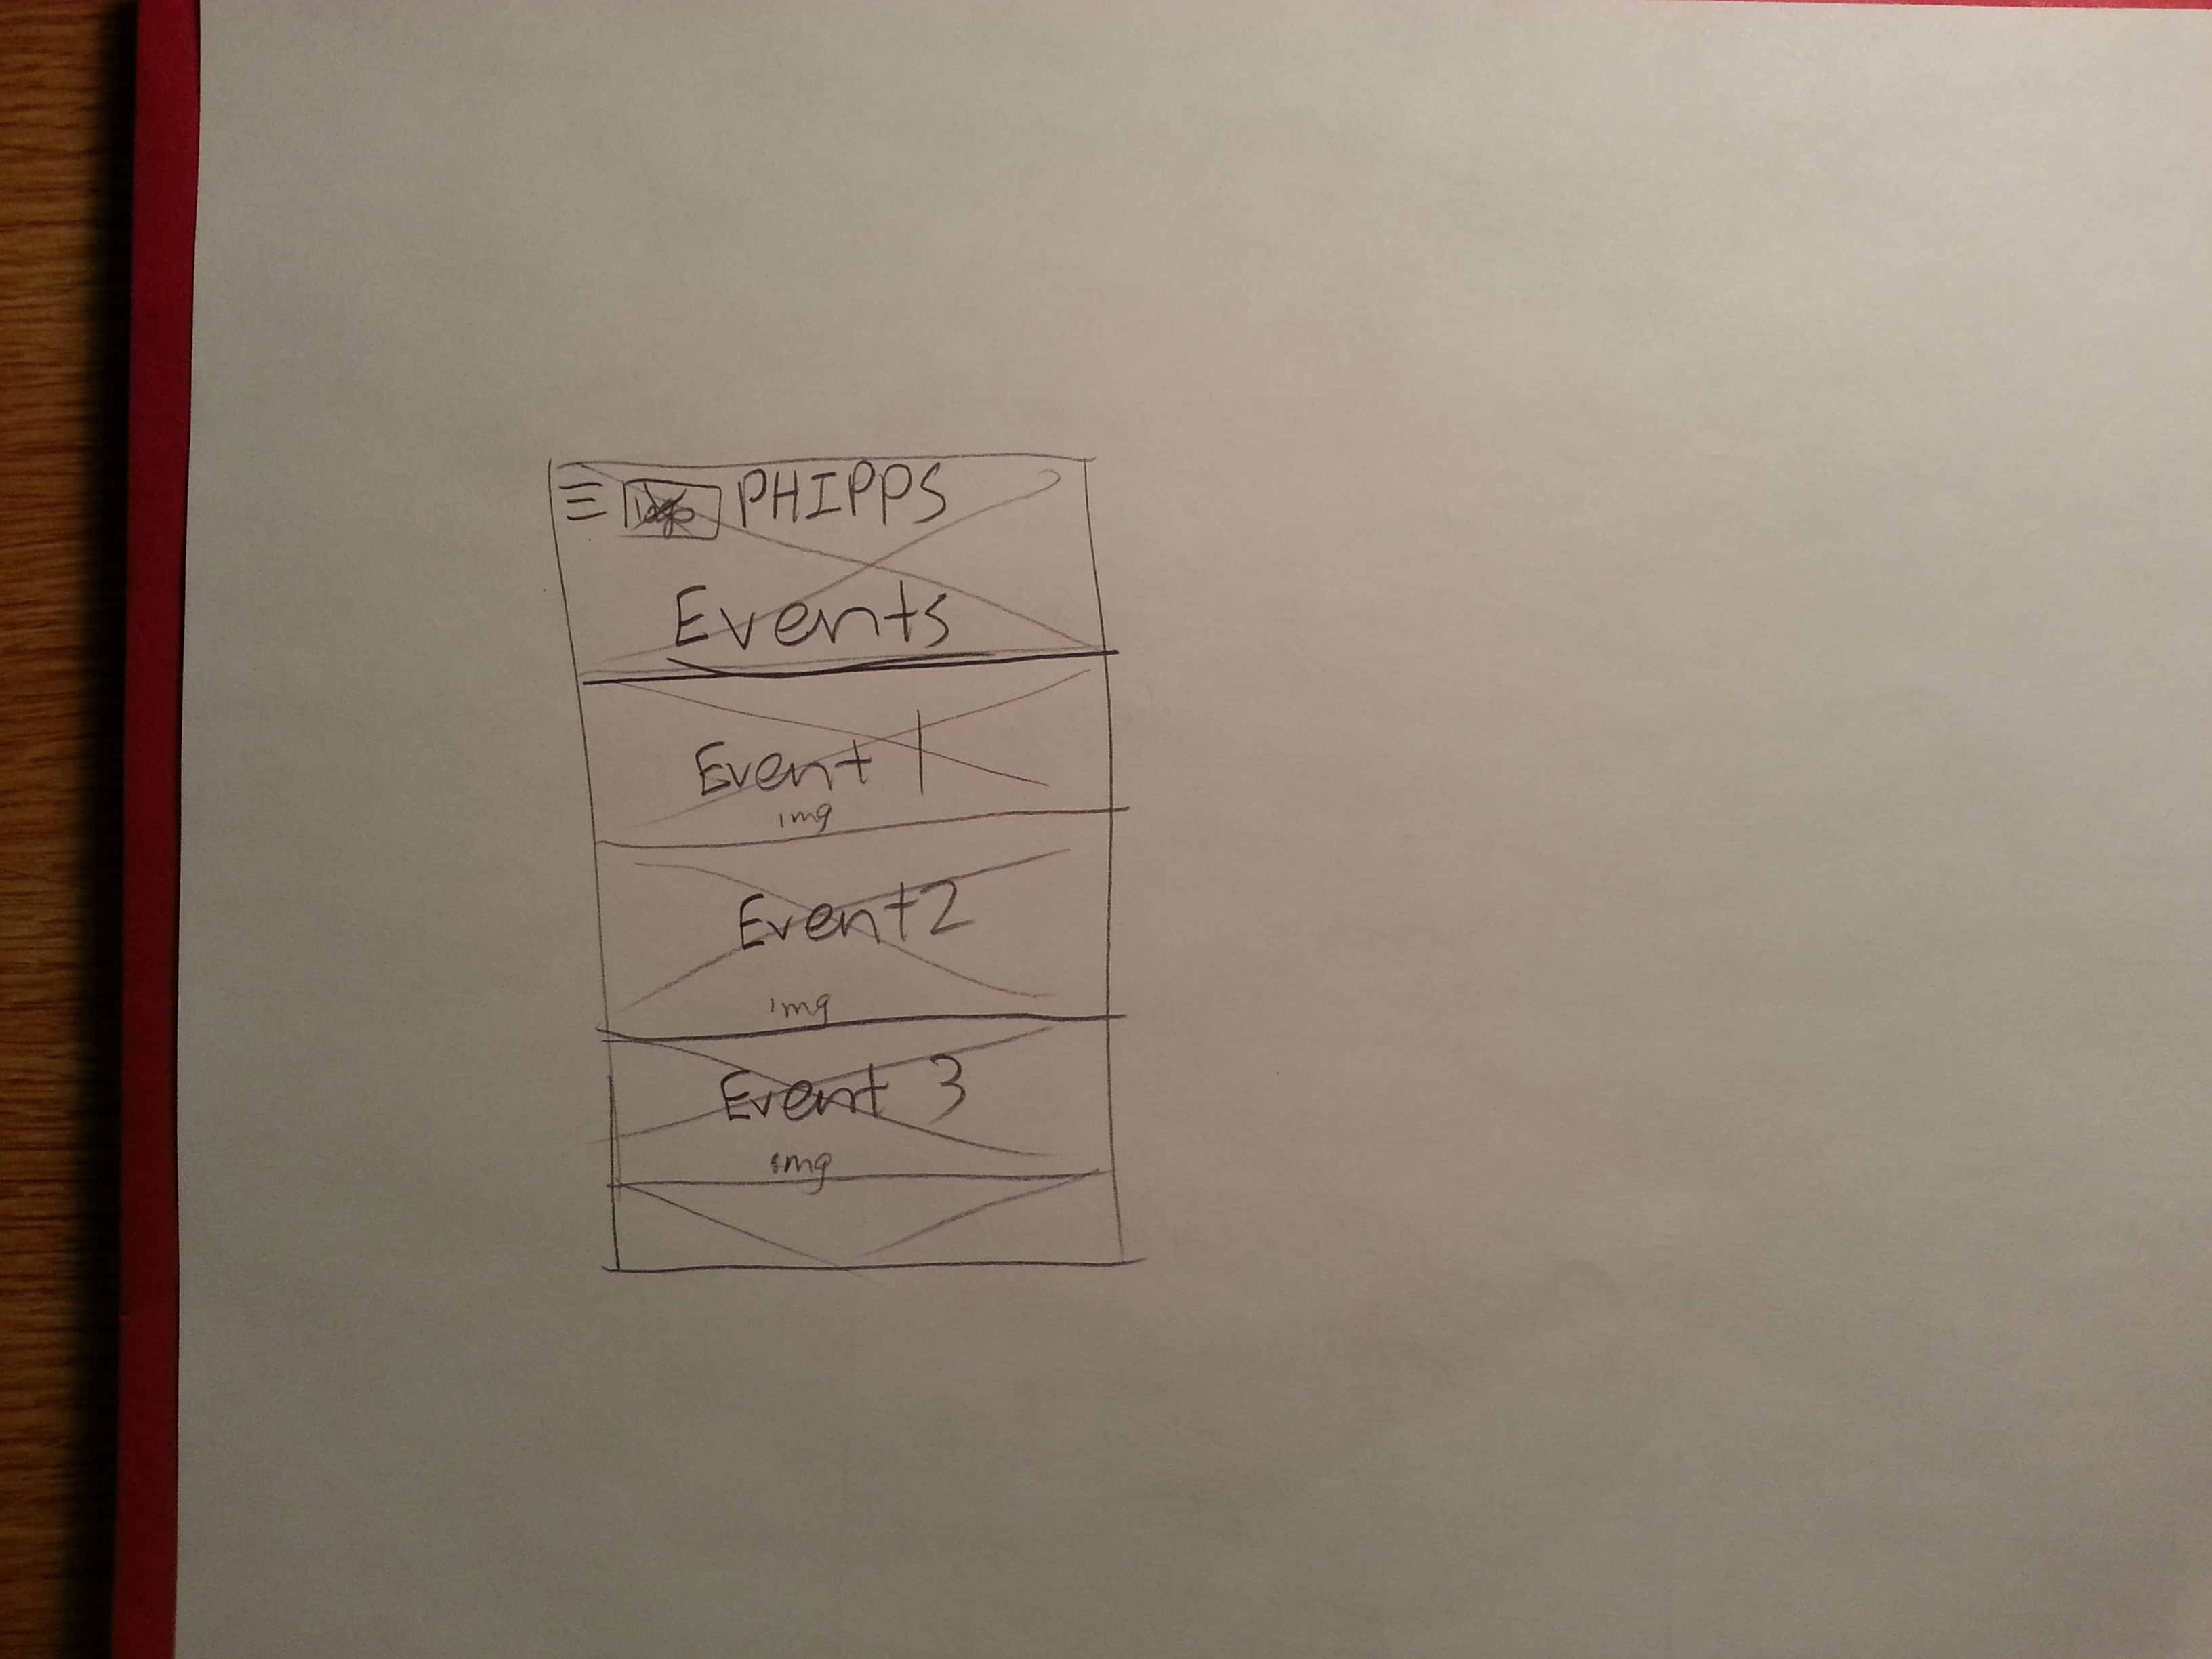 logo PHIPPS
Events
Event 1
img
Event 2
img
Event 3
img